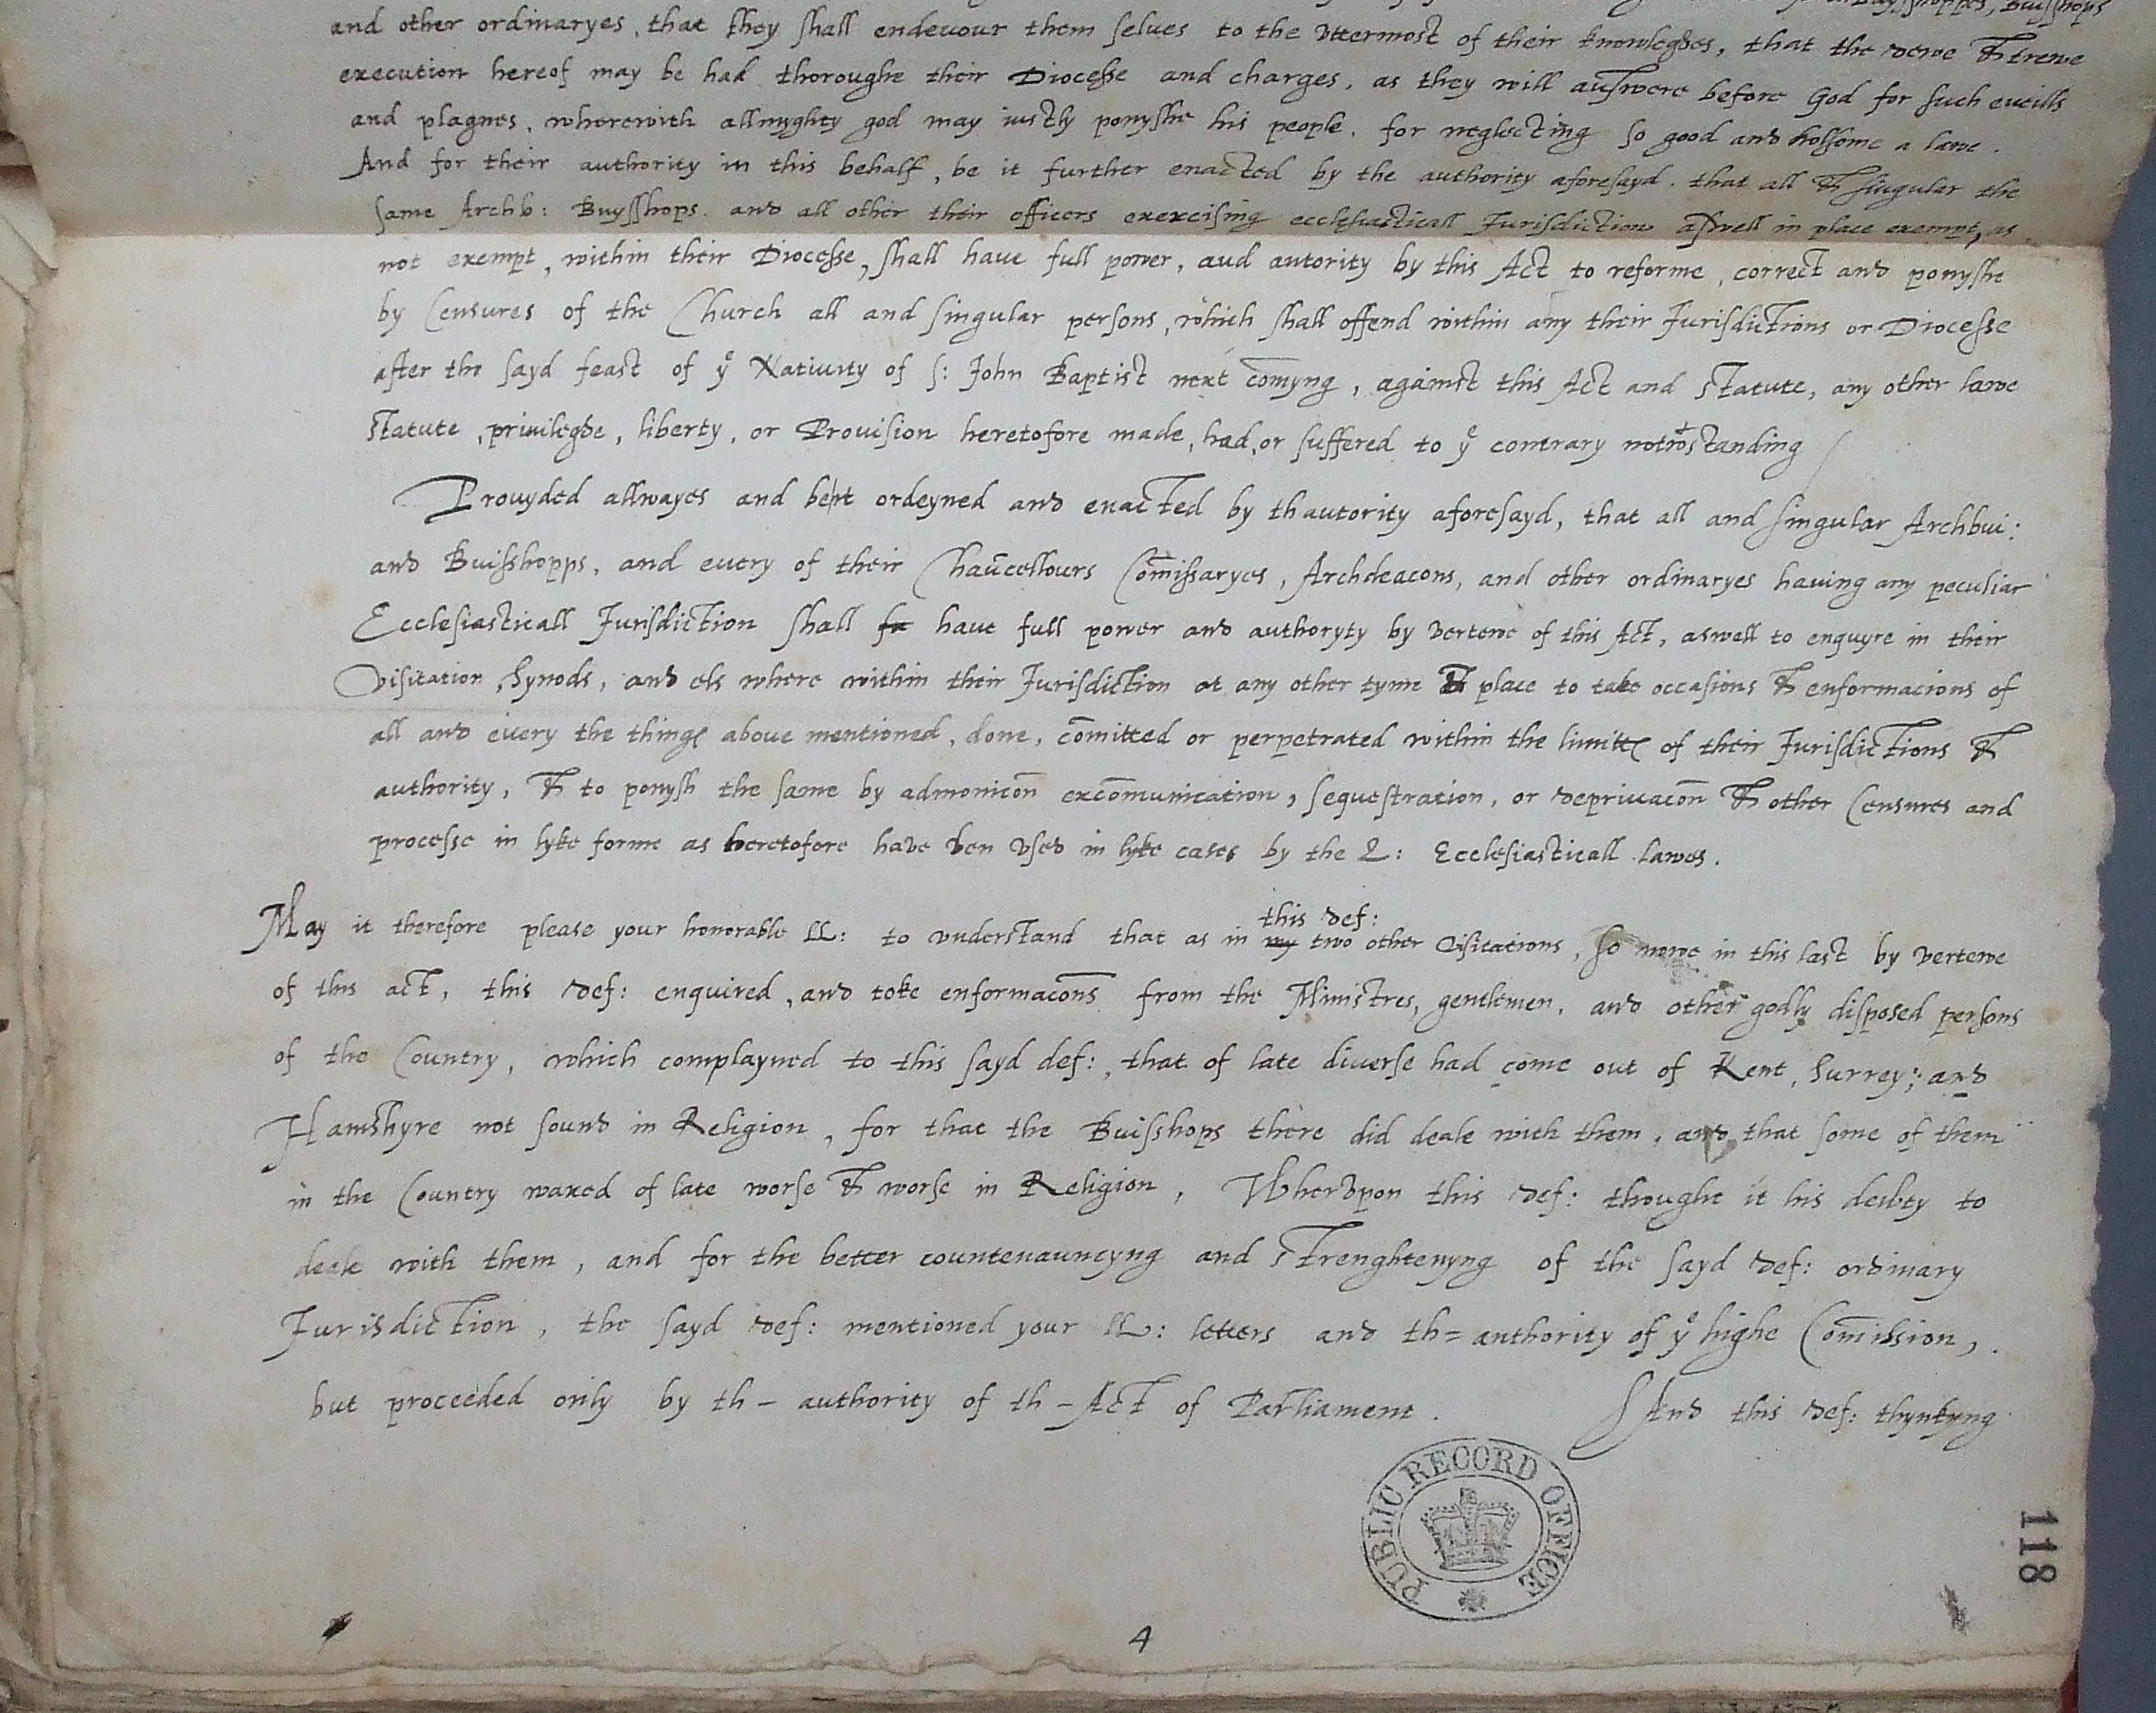 Buysshops
and other ordinaryes, that they shall endeuour them selues to the vttermost of their knowleghes, that the dewe & trewe
execution hereof may be had thoroughe their Diocesse and charges, as they will auswere before God for such euills
and plagues, wherewith allmyghty god may iustly ponyshe his people, for neglecting so good and holsome a lawe.
And for their authority in this behalf, be it further enacted by the authority aforesayd, that all & singular the
same Archb: Buysshops. and all other their officers exercising ecclesiasticall Jurisdiction aswell in place exempt, as
not exempt, within their Diocesse, shall haue full power, aud autority by this Act to reforme, correct and ponyshe
by Censures of the Church all and singular persons, which shall offend within any their Jurisdictions or Diocesse
after the sayd feast of yͤ Natiuity of S: John Baptist next com̅yng, against this Act and Statute, any other lawe
Statute, priuileghe, liberty, or Prouision heretofore made, had, or suffered to yͤ contrary notwᵗstanding
Prouyded allwayes and beit ordeyned and enacted by thautority aforesayd, that all and singular Archbui:
and Buisshopps, and euery of their Chau̅cellours Com̅issaryes, Archdeacons, and other ordinaryes hauing any peculiar
Ecclesiasticall Jurisdiction shall fu haue full power and authoryty by vertewe of this Act, aswell to enquyre in their
Visitation, Synods, and els where within their Jurisdiction at any other tyme & place to take occasions & enformacions of
all and euery the things aboue mentioned, done, com̅itted or perpetrated within the limittes of their Jurisdictions &
authority, & to ponysh the same by admonico̅n exco̅munication, sequestration, or depriuaco̅n & other Censures and
processe in lyke forme as heretofore haue ben vsed in lyke cases by the Q: Ecclesiasticall lawes.
this def:
May it therefore please your honorable LL: to vnderstand that as in my two other visitations, so nowe in this last by vertewe
of this act, this def: enquired, and toke enformaco̅ns from the Ministres, gentlemen, and other godly disposed persons
of the Country, which complayned to this sayd def:, that of late diuerse had come out of Kent, Surrey, and
Hamshyre not sound in Religion, for that the Buisshops there did deale with them, and that some of them
in the Country waxed of late worse & worse in Religion, Wherevpon this def: thought it his deuty to
deale with them, and for the better countenauncyng and strenghtenyng of the sayd def: ordinary
Jurisdiction, the sayd def: mentioned your LL: letters and th= authority of yͤ highe Com̅ission,
but proceeded only by th- authority of th- Act of Parliament. And this def: thynkyng
PUBLIC RECORD OFFICE
118
4